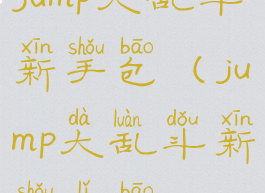 jump大乱斗
xīn shǒu bāo
新手包（ju
dà luàn dǒu xīn
mp大乱斗新
shǒu lǐ bāo